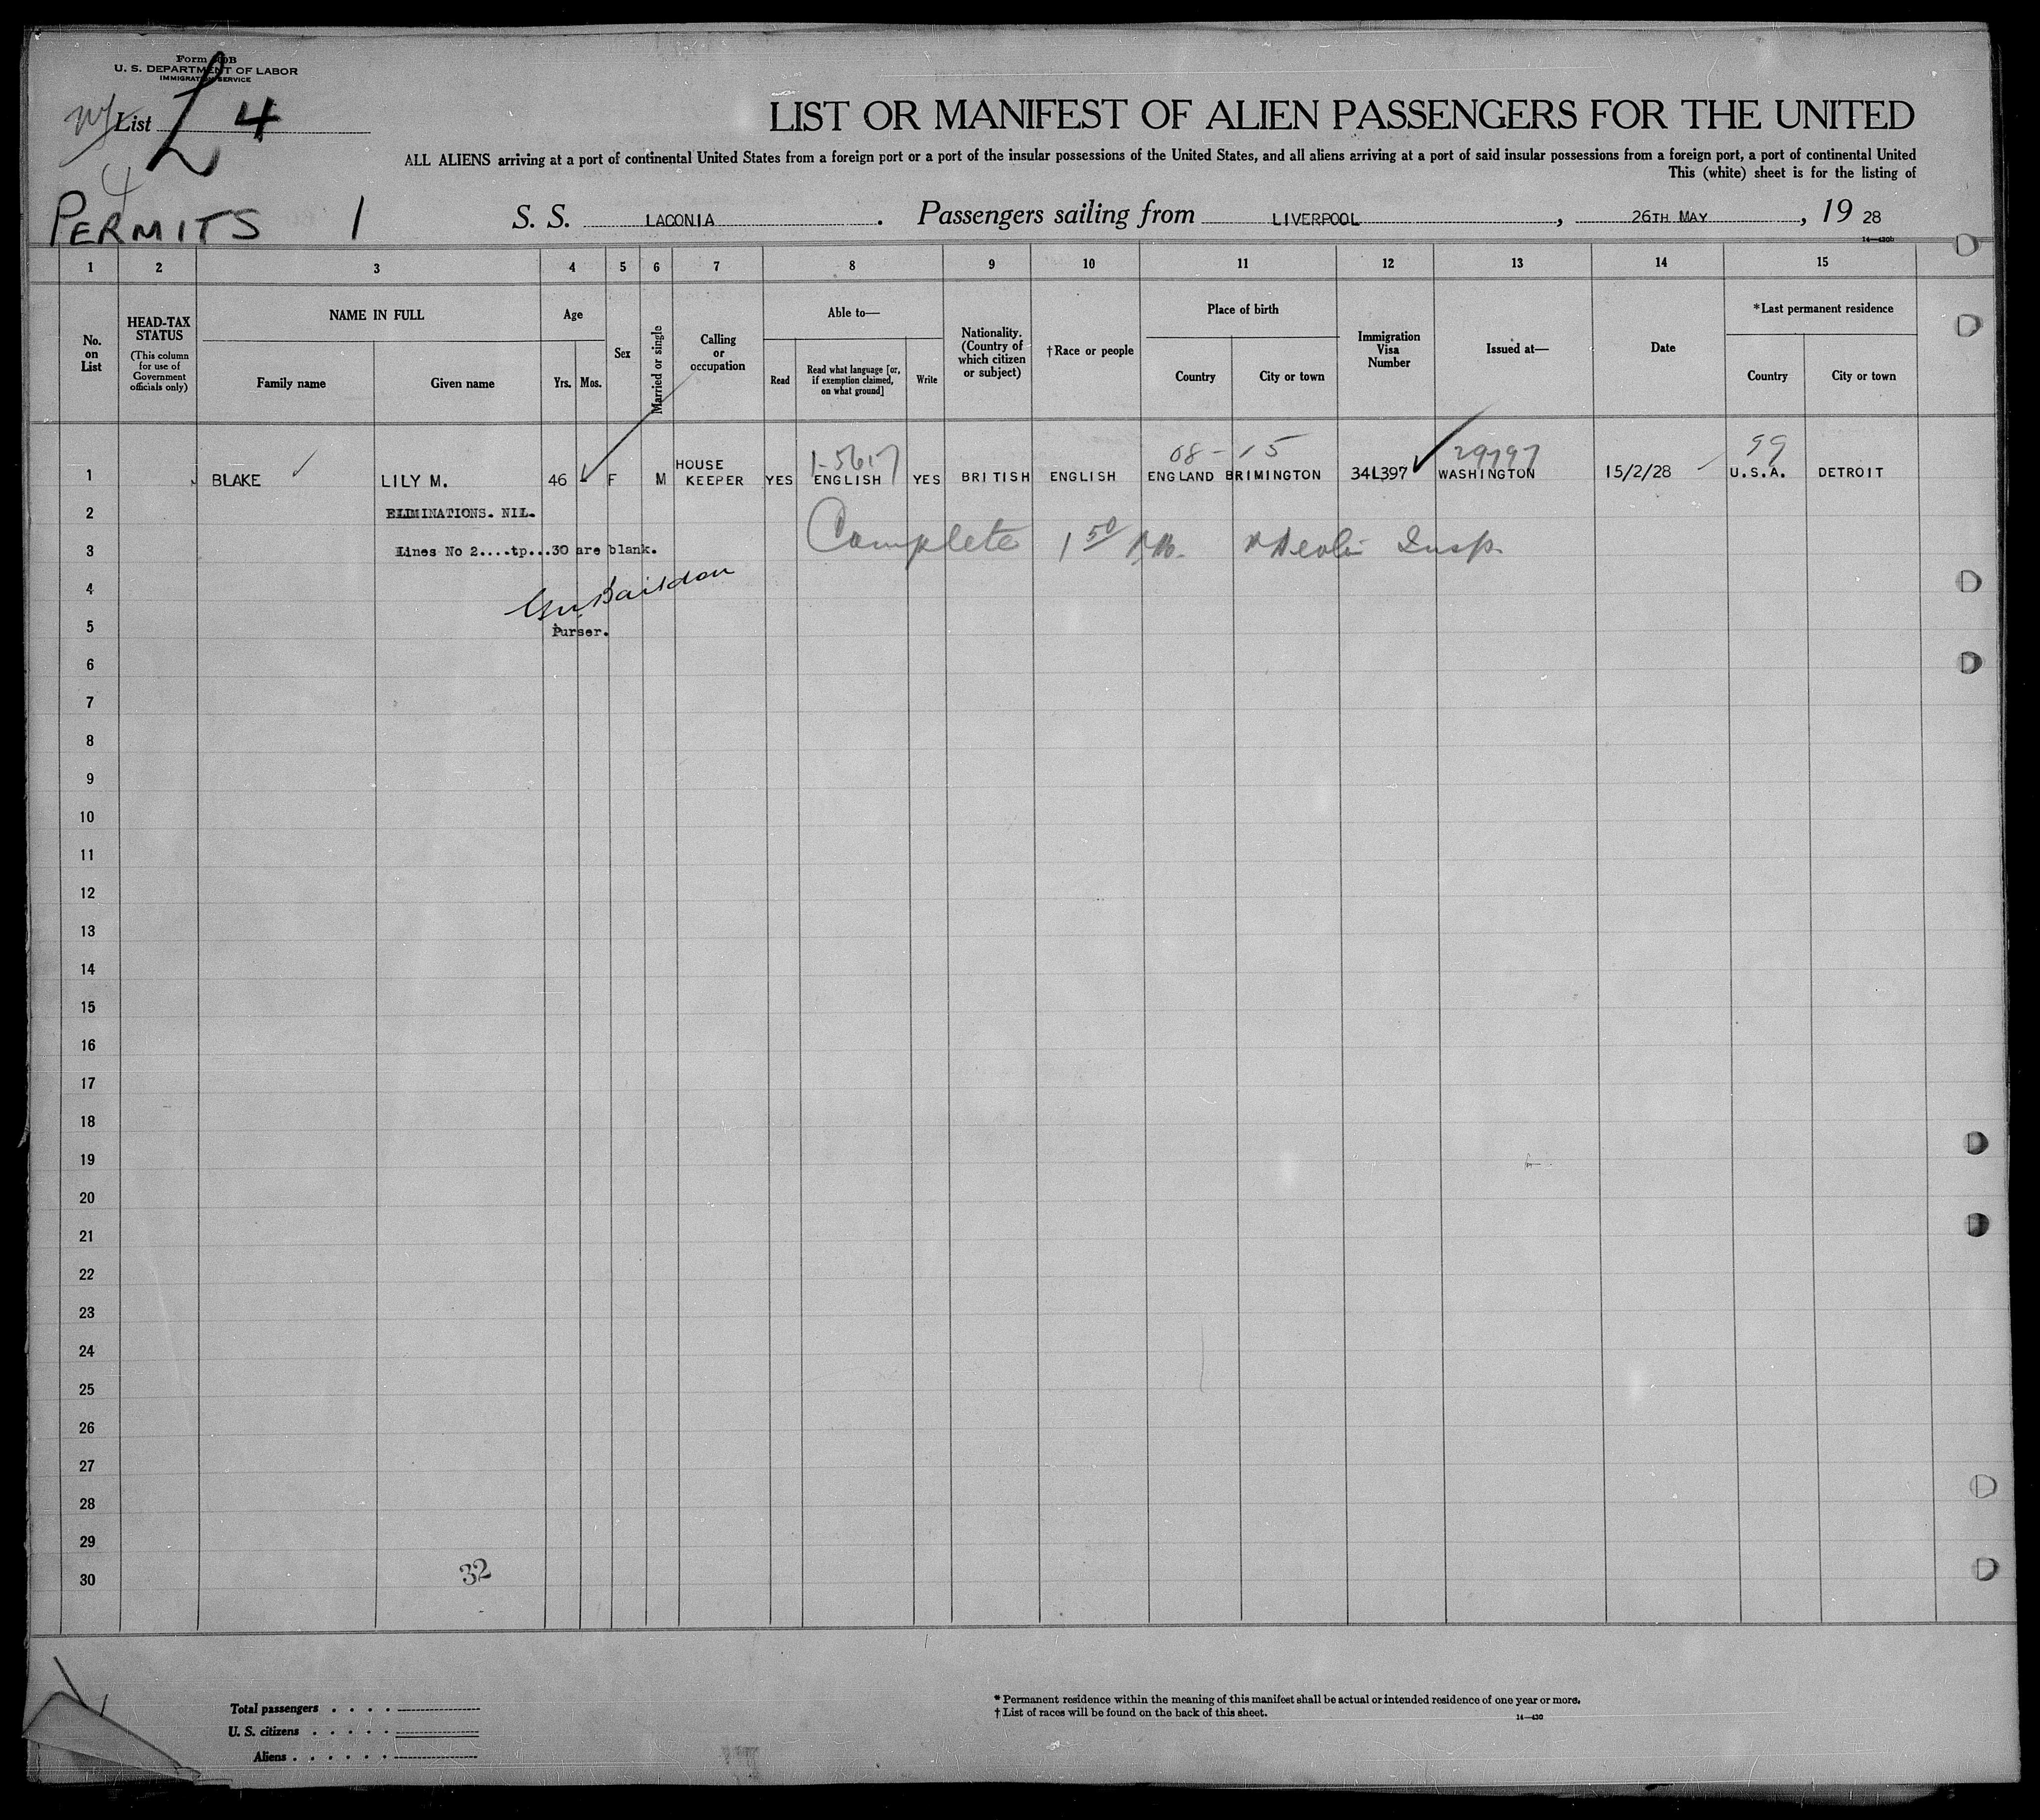 Form 500B
U. S. DEPARTMENT OF LABOR
IMMIGRATION SERVICE
List 4
L
4
PERMITS 1
LIST OR MANIFEST OF ALIEN PASSENGERS FOR THE UNITED
ALL ALIENS arriving at a port of continental United States from a foreign port or a port of the insular possessions of the United States, and all aliens arriving at a port of said insular possessions from a foreign port, a port of continental United
This (white) sheet is for the listing of
S. S. LACONIA. Passengers sailing from LIVERPOOL, 26TH MAY, 19 28
14—430b
1 2 3 4 5 6 7 8 9 10 11 12 13 14 15
No. on List
HEAD-TAX STATUS
(This column for use of Government officials only)
NAME IN FULL
Family name Given name
Age
Yrs. Mos.
Sex
Married or single
Calling or occupation
Able to—
Read
Read what language [or, if exemption claimed, on what ground]
Write
Nationality. (Country of which citizen or subject)
†Race or people
Place of birth
Country City or town
Immigration Visa Number
Issued at—
Date
*Last permanent residence
Country City or town
08 - 15 29797 99
1 BLAKE LILY M. 46 F M HOUSE KEEPER YES ENGLISH YES BRITISH ENGLISH ENGLAND BRIMINGTON 34L397 WASHINGTON 15/2/28 U.S.A. DETROIT
2 ELIMINATIONS. NIL.
3 Lines No 2....tp...30 are blank. Complete 1 50 Insp.
4
5 Purser.
6
7
8
9
10
11
12
13
14
15
16
17
18
19
20
21
22
23
24
25
26
27
28
29
30
32
Total passengers
U. S. citizens
Aliens
* Permanent residence within the meaning of this manifest shall be actual or intended residence of one year or more.
† List of races will be found on the back of this sheet.
14—430